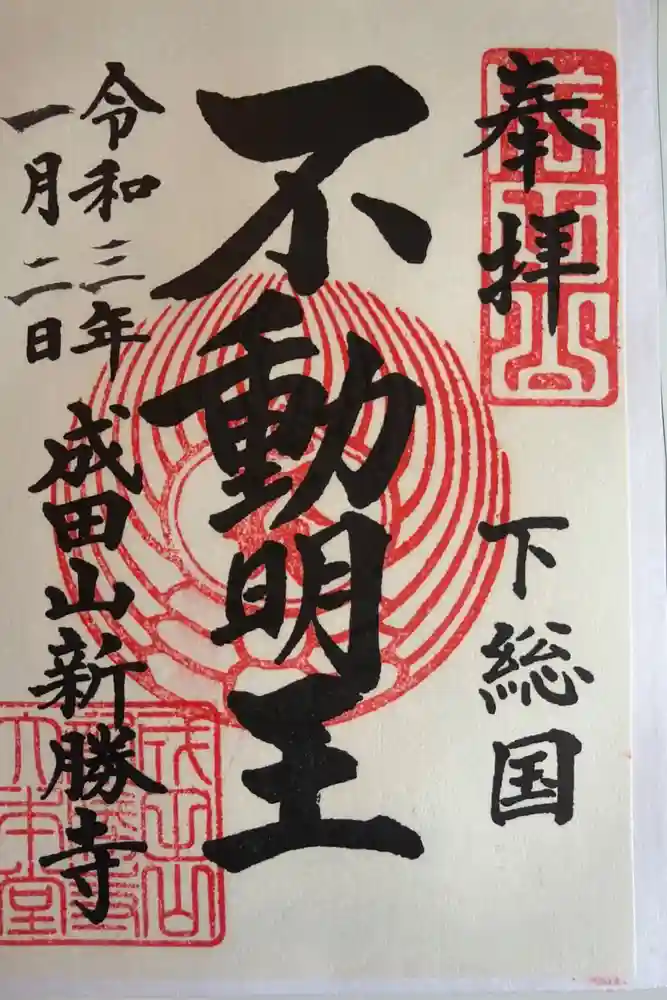 奉拝
下総国
不動明王
令和三年
一月二日
成田山新勝寺
成田山